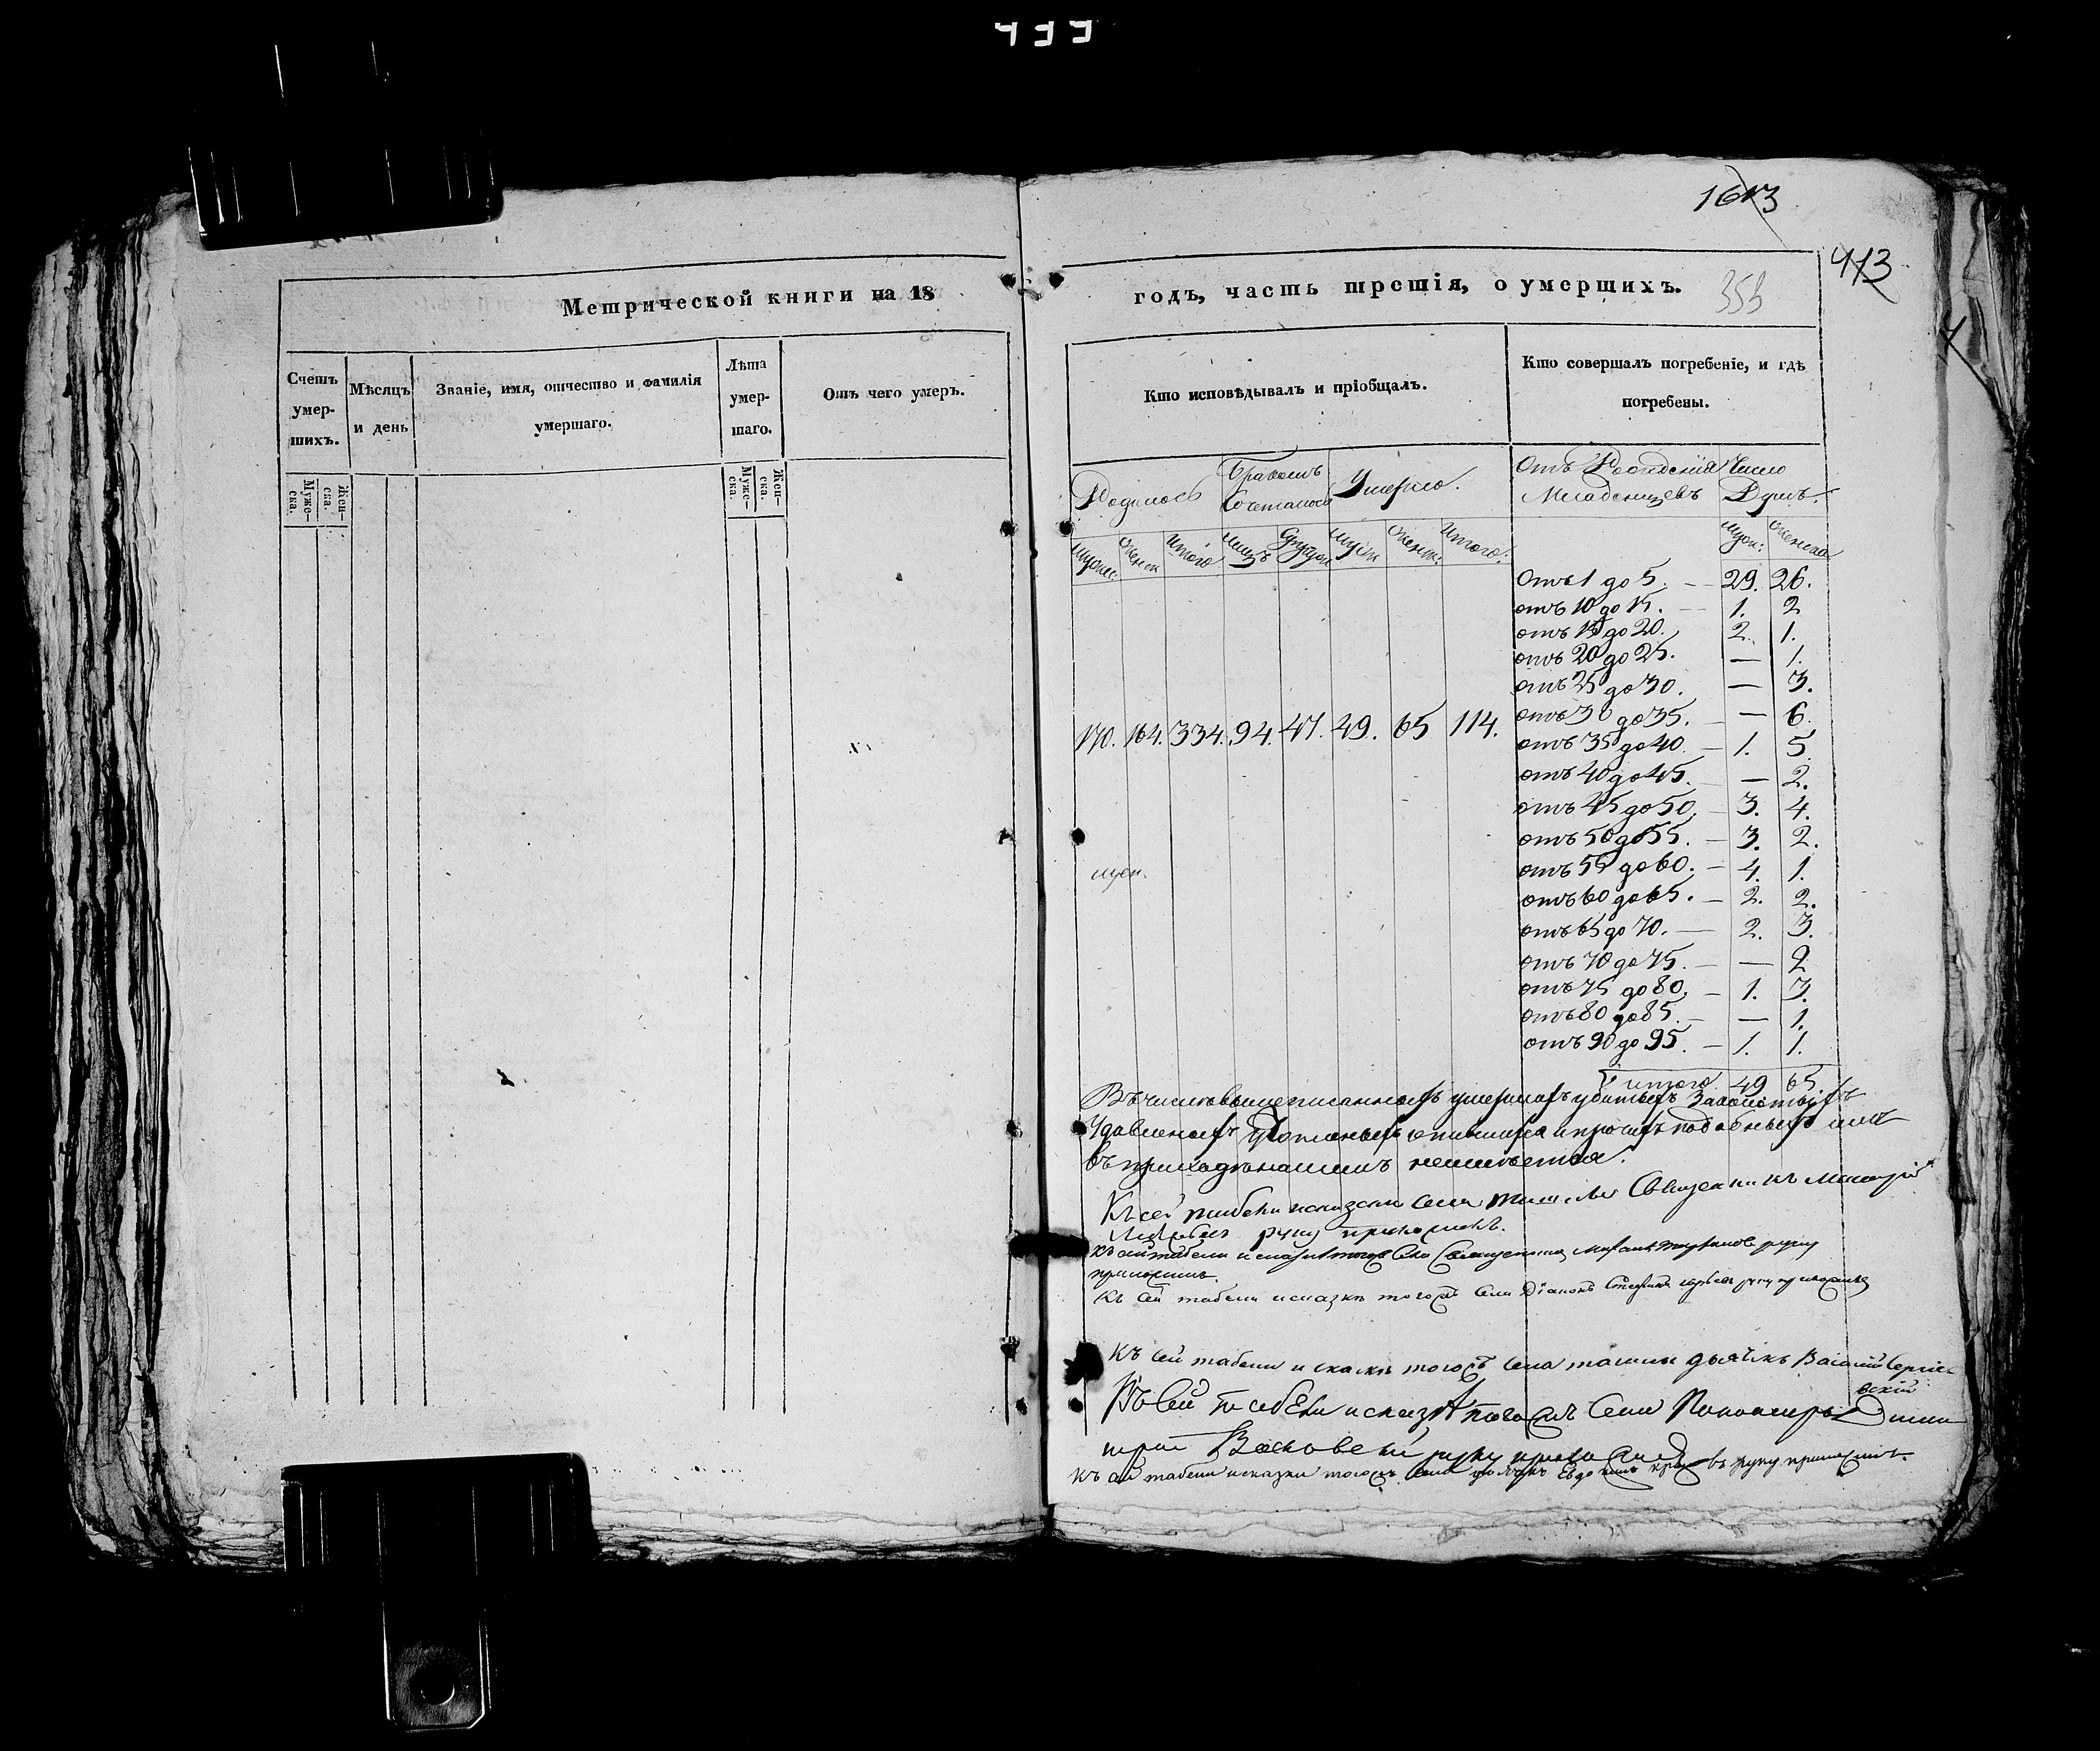 433
1613
413
353
Метрической книги на 18
годъ, часть третія, о умершихъ.
Счетъ умер-шихъ.
Мѣсяцъ и день
Званіе, имя, отчество и фамилія умершаго.
Лѣта умер-шаго.
Отъ чего умеръ.
Муже-ска.
Жен-ска.
Муже-ска.
Жен-ска.
Кто исповѣдывалъ и пріобщалъ.
Кто совершалъ погребеніе, и гдѣ погребены.
Родилось
Бракомъ Сочеталось
Умерло.
Отъ Рождения Младенцевъ
Число Душъ.
женск итого лицъ муж женск: итого:
муж: женска
170. 164. 334. 94. 47. 49. 65 114.
Отъ 1 до 5. — 29. 26.
отъ 10 до 15. — 1. 2
отъ 15 до 20. 2. 1.
отъ 20 до 25. — 1.
отъ 25 до 30. — 3.
отъ 30 до 35. — 6.
отъ 35 до 40. — 1. 5
отъ 40 до 45. — 2.
отъ 45 до 50. — 3. 4.
отъ 50 до 55. — 3. 2.
отъ 55 до 60. — 4. 1.
отъ 60 до 65. — 2. 2.
отъ 65 до 70. — 2. 3.
отъ 70 до 75. — — 2
отъ 75 до 80. — 1. 3.
отъ 80 до 85. — — 1.
отъ 90 до 95. — 1. 1.
итого 49 65.
Въ числе вышеписанныхъ умершихъ убитыхъ
и прочихъ подобныхъ имъ
въ приходе нашемъ неимеется.
Къ сей табели и сказки села Священникъ
руку приложилъ.
Къ сей табели и сказки тогожъ села Священникъ руку
приложилъ.
Къ сей табели и сказки тогожъ села Діаконъ руку приложилъ
Къ сей табели и скаски тогожъ села дьячекъ Василий Сергие-
вский
Къ сей табели и сказки тогожъ села Пономарь Дими
трий руку приложилъ
Къ сей табели и сказки тогожъ села руку приложилъ.